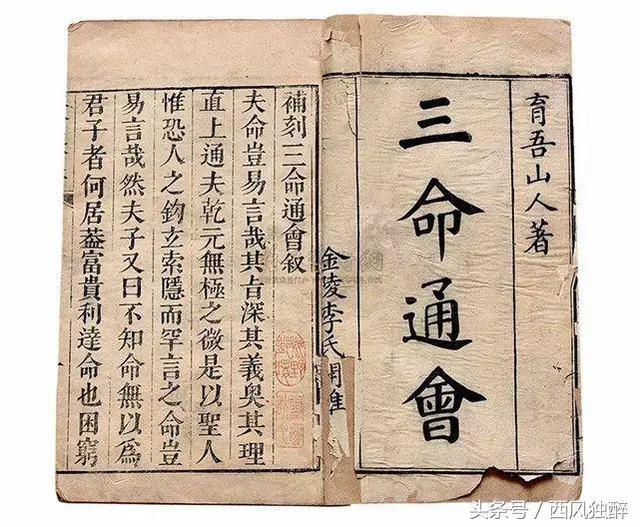 育吾山人著
三命通會
金陵李氏
補刻三命通會叙
夫命豈易言哉其旨深其義奥其理
直上通夫乾元無極之微是以聖人
惟恐人之鈎玄索隱而罕言之命豈
易言哉然夫子又曰不知命無以爲
君子者何居葢富貴利達命也困窮
头条号/西风独醉